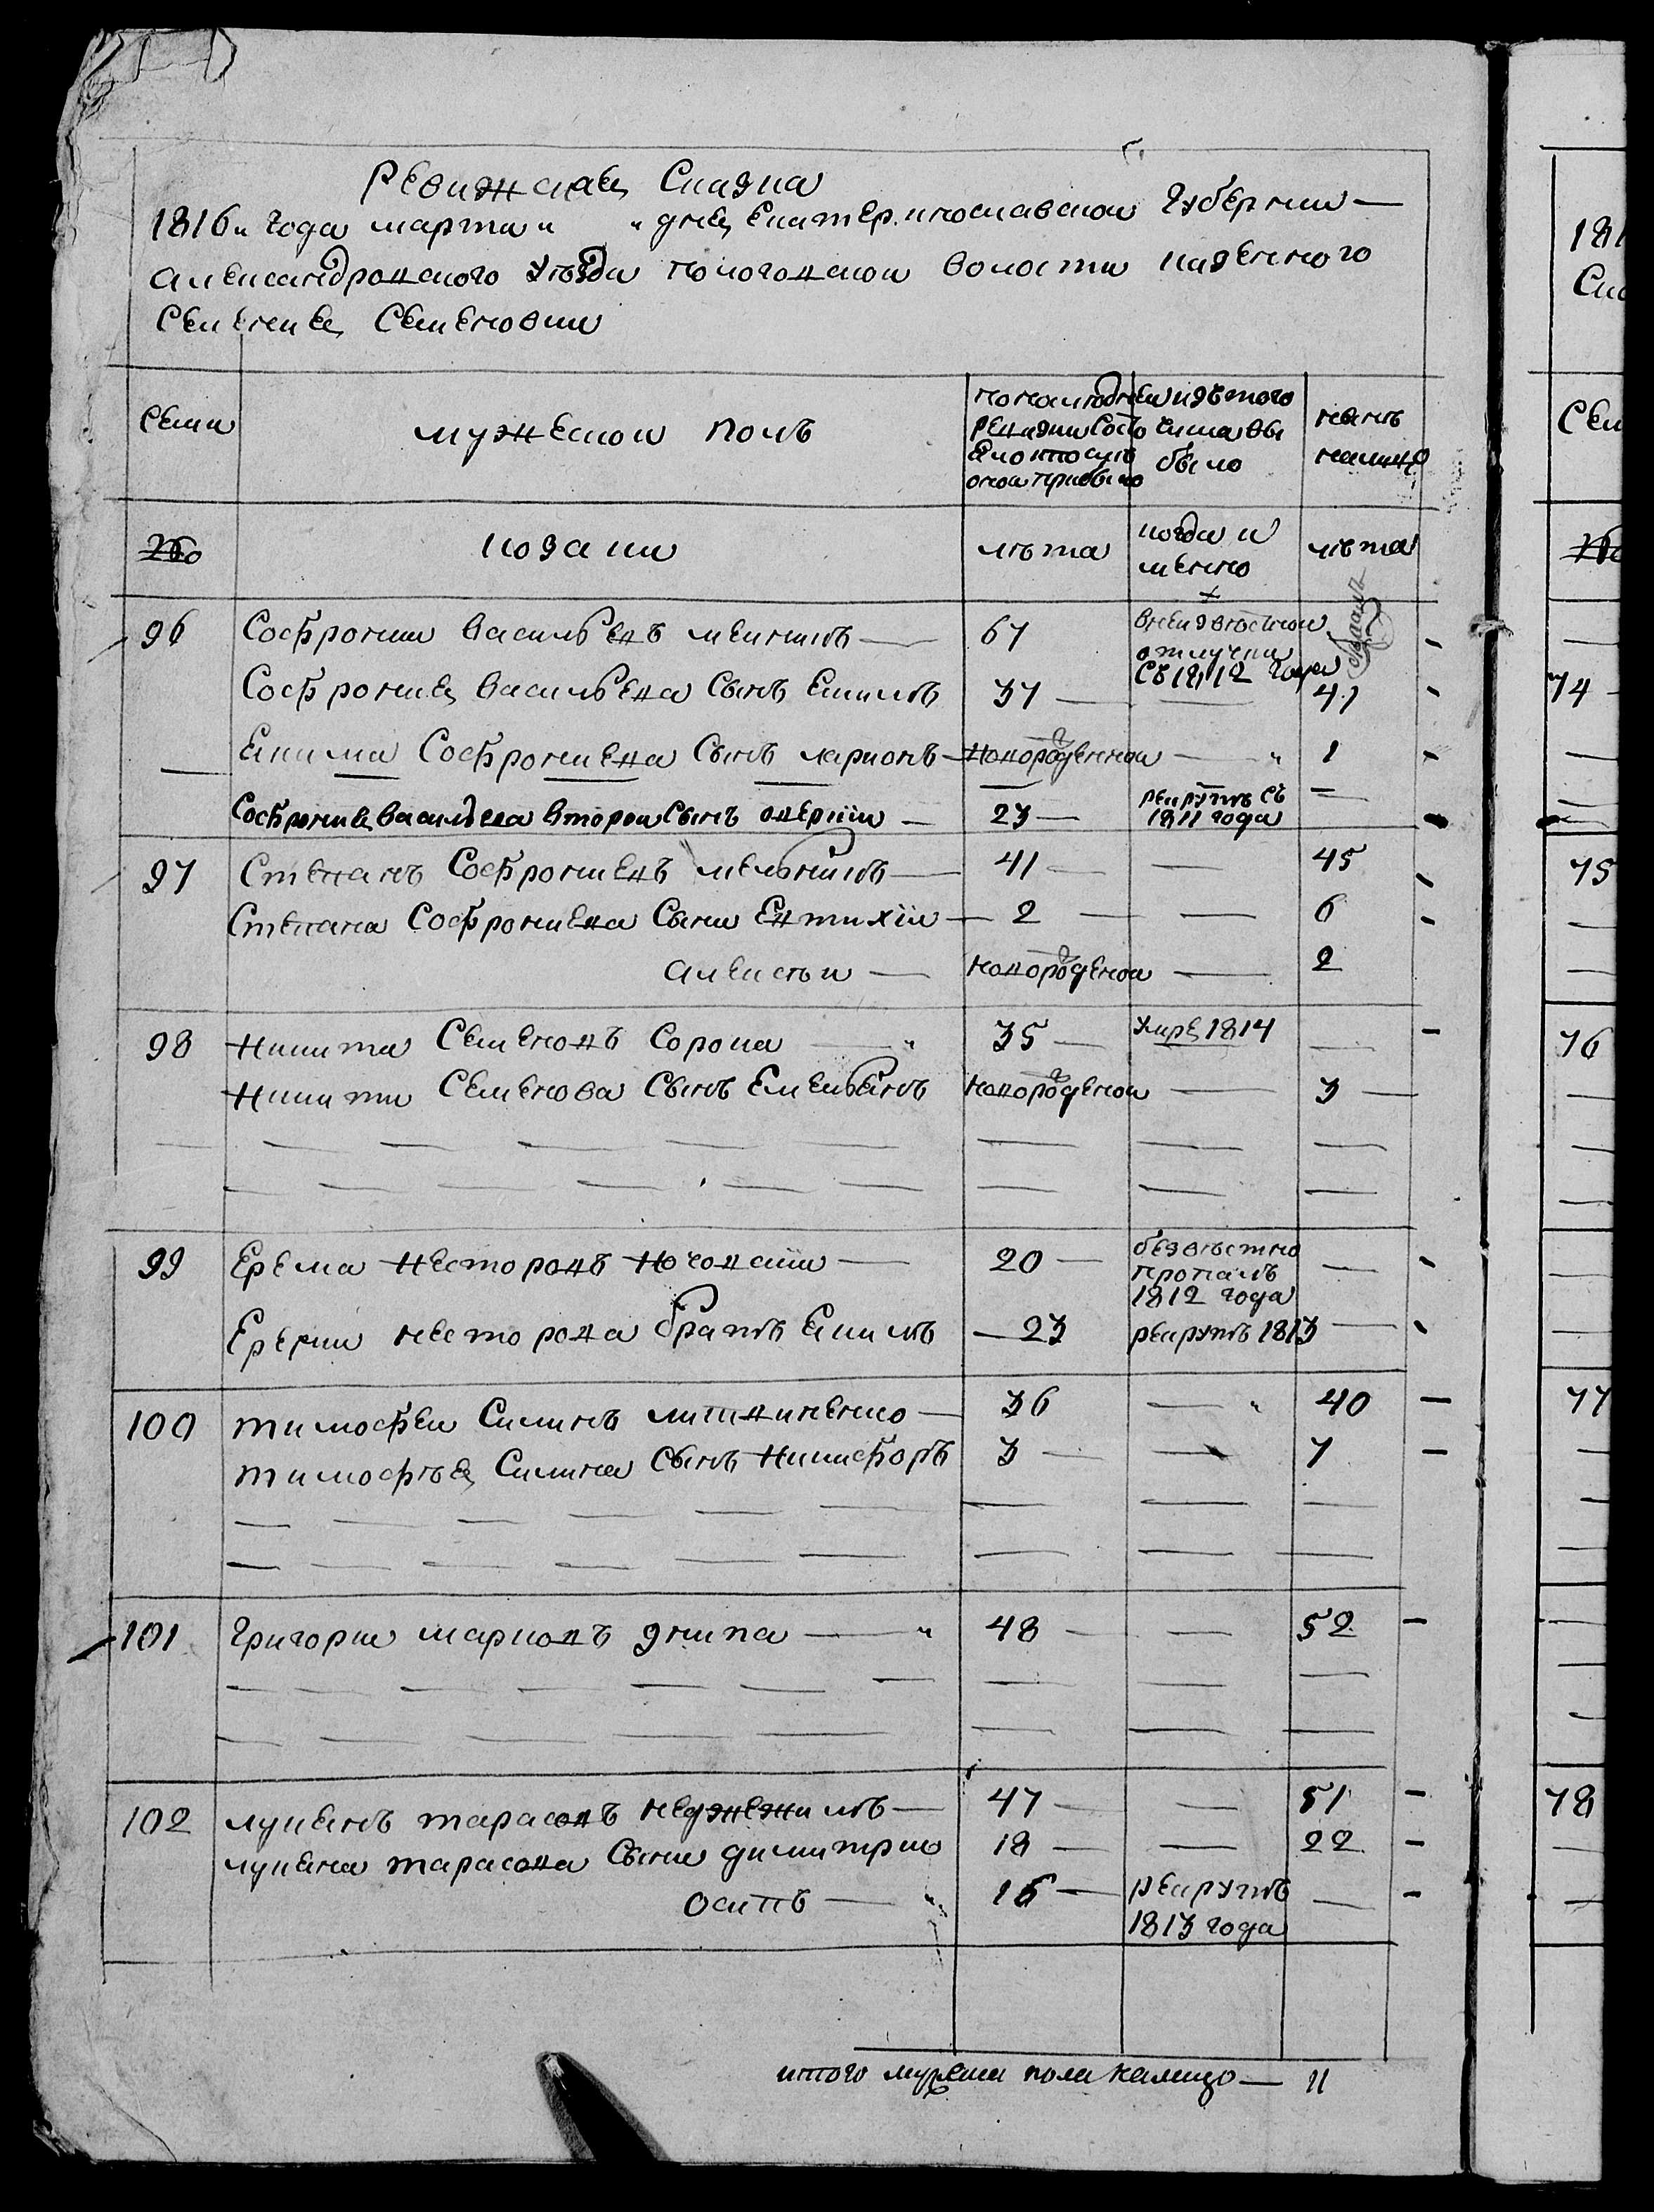 Ревижская Сказка
1816" года марта " " дня Екатеринославской Губернии —
Александровского уѣзда пологовской волости казенного
Селения Семеновки
Семьи
мужеской полъ
по последней
ревизии состо
яло и после
оной прибыло
изъ того
числа вы
было
нынѣ
налицо
№
козаки
лѣта
когда и
менно
лѣта
96 Софронии Васильевъ меикинъ — 67 внеизвѣсной
отлучки
съ 1812 года
Софрония Васильева Сынъ Екимъ 37 — — 41
Екима Софрониева Сынъ ларионъ — новорожденной — " 1
Софрония Васильева второй Сынъ оверкии — 23 — рекрутъ съ
1811 года —
97 Степанъ Софрониевъ мельникъ — 41 — — 45
Степана Софрониева Сыни Евтихїи — 2 — — 6
Алексѣи — новорожденой — 2
98 Никита Семеновъ Сорока — " 35 — умре 1814 —
Никити Семенова Сынъ Емельянъ новорожденой — 3 —
99 Ерема Несторовъ Ноговскїи — 20 — безвѣстно
пропалъ
1812 года —
Еремы несторова братъ Екимъ — 23 рекрутъ 1813 —
100 тимофеи Силинъ литвиненко — 36 — " 40
тимофѣя Силина Сынъ Никифоръ 3 — — 7
101 григории мариовъ дзюпа — " 48 — — 52
102 лукянъ тарасовъ недзежилъ — 47 — — 51
лукяна тарасова Сыни димитрию 18 — — 22
осипъ — 16 — рекрутъ
1813 года —
итого мужеска пола налицо — 11
181
Сел
Сем
№
74
75
76
77
78